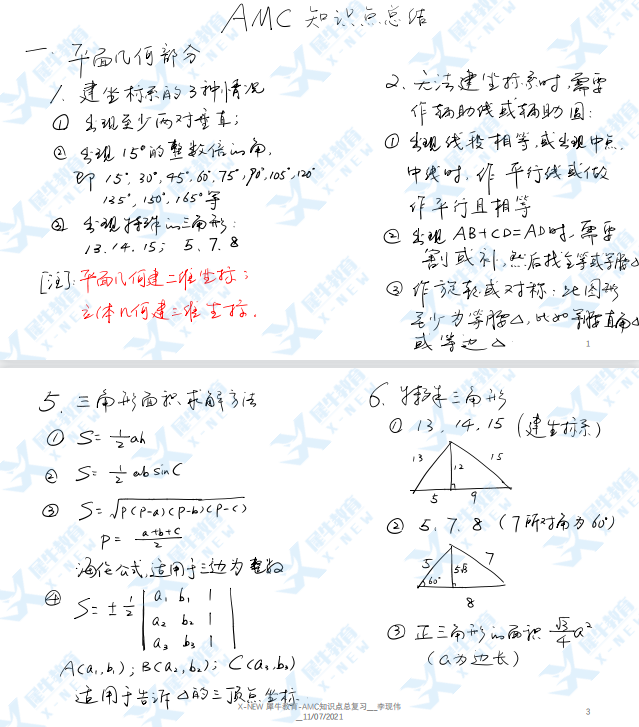 AMC 知识点总结
一. 平面几何部分
1. 建坐标系的3种情况
① 出现至少两对垂直;
② 出现15°的整数倍的角,
即 15°, 30°, 45°, 60°, 75°, 90°, 105°, 120°
135°, 150°, 165° 等
③ 出现特殊的三角形:
13. 14. 15; 5、7. 8
[注]: 平面几何建二维坐标;
立体几何建三维坐标.
2. 无法建坐标系时,需要
作辅助线或辅助圆:
① 出现线段相等,或出现中点,
中线时,作平行线或做
作平行且相等
② 出现 AB+CD=AD时,需要
割或补,然后找全等或等腰△
③ 作旋转或对称:此图形
至少为等腰△,比如等腰直角△
或等边△
1
5. 三角形面积求解方法
① S= 1/2 ah
② S= 1/2 ab sinC
③ S= √P(P-a)(P-b)(P-c)
P= a+b+c/2
海伦公式,适用于三边为整数
④ S= ± 1/2 | a₁ b₁ 1 |
| a₂ b₂ 1 |
| a₃ b₃ 1 |
A(a₁,b₁); B(a₂,b₂); C(a₃,b₃)
适用于告诉△的三顶点坐标
6. 特殊三角形
① 13. 14. 15 (建坐标系)
13 12 15
5 9
② 5. 7. 8 (7所对角为60°)
5 5√3 7
60°
8
③ 正三角形的面积 √3/4 a²
(a为边长)
X-NEW 犀牛教育-AMC知识点总复习__李现伟
_11/07/2021
3
犀牛教育
X-NEW